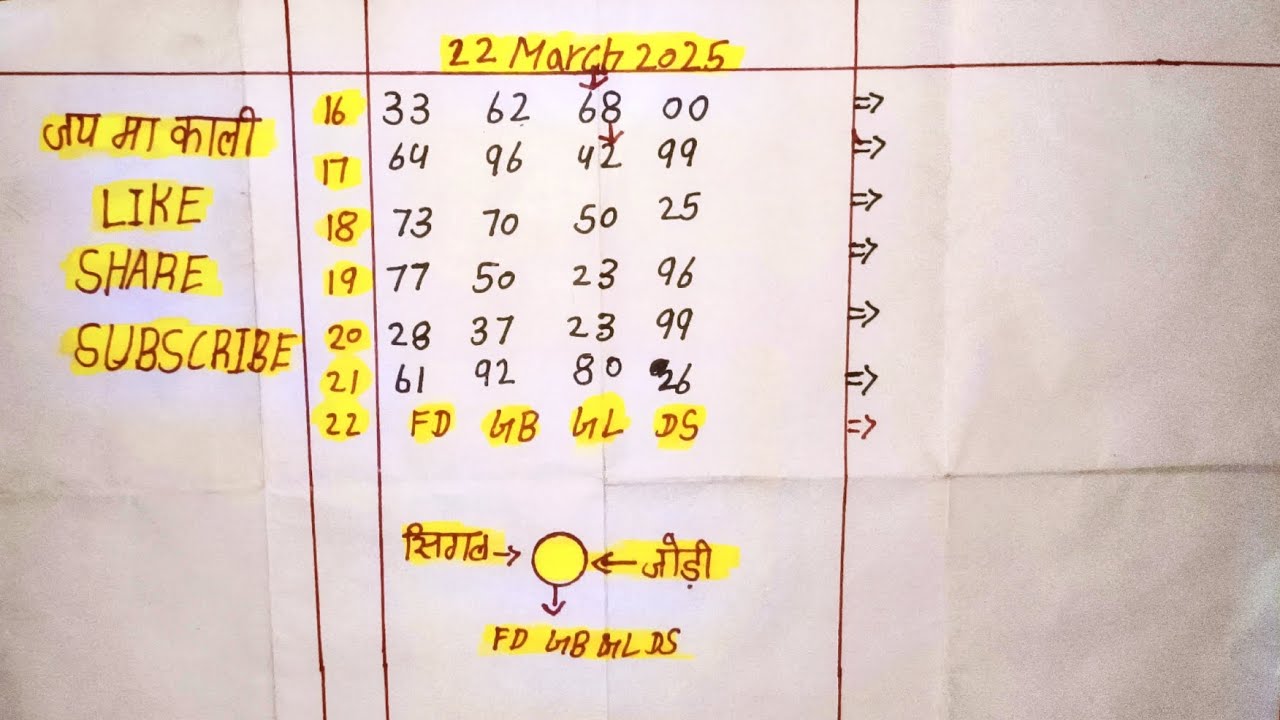 22 March 2025
जय मा काली
LIKE
SHARE
SUBSCRIBE
16 33 62 68 00 =>
17 64 96 42 99 =>
18 73 70 50 25 =>
19 77 50 23 96 =>
20 28 37 23 99 =>
21 61 92 80 26 =>
22 FD GB GL DS =>
सिगल → ← जोड़ी
FD GB GL DS